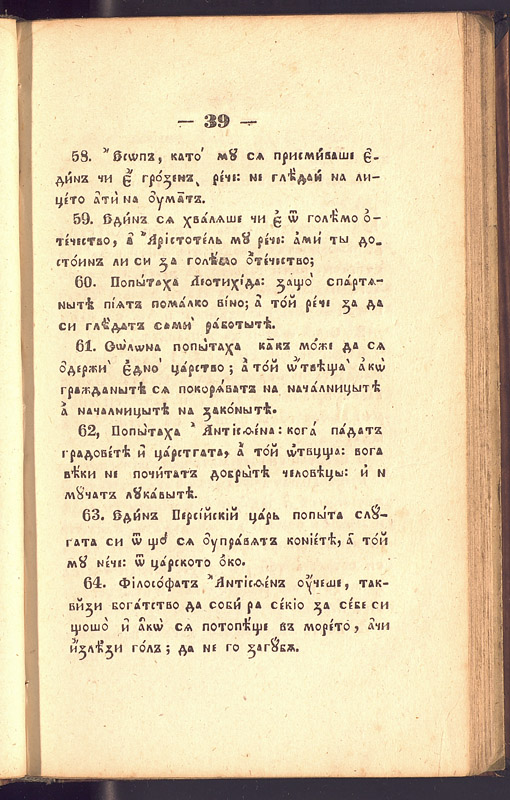 — 39 —
58. Ѵ҆Есѡпъ, като̀ мꙋ сѧ присми́ваше є҆-
ди́нъ чи є҆̀ гро́зенъ, ре́че: не глѣ́дай на ли-
це́то а҆ти́ на ᲂу҆ма̑тъ.
59. Еди́нъ сѧ хва́лѧше чи є҆̀ ѿ голѣ́мо ѻ҆-
те́чество, а҆̀ А҆рїсто́тель мꙋ ре́че: а҆мѝ ты до-
сто́инъ ли си за голѣ́мо ѻ҆те́чество;
60. Попы́таха Леотихі́да: защо̀ спа́ртѧ-
нытѣ пі́ѧтъ пома́лко ві́но; а҆̀ то́й ре́че за да
си глѣ́датъ самѝ ра́ботытѣ.
61. Со́лѡна попы́таха ка̑къ мо́же да сѧ
ѻ҆держѝ є҆дно̀ ца́рство; а҆̀ то́й ѿвѣща̀ а҆кѡ̀
гра́жданытѣ сѧ покорѧ́ватъ на нача́лницытѣ
а҆̀ нача́лницытѣ на зако́нытѣ.
62, Попы́таха А҆нтїсѳе́на: кога̀ па́датъ
градове́тѣ и҆̀ ца́рстгата, а҆̀ то́й ѿвцща: вога
вѣ́ки не почи́татъ добры́тѣ человѣ́цы: и҆̀ н
мꙋ́чатъ лꙋка́вытѣ.
63. Еди́нъ Персі́йскїй ца́рь попы́та слꙋ-
гата си ѿ що̀ сѧ ᲂу҆пра́вѧтъ коніе́тѣ, а҆̀ то́й
мꙋ не́че: ѿ ца́рското ѻ҆́ко.
64. Філосо́фатъ А҆нтїсѳе́нъ ᲂу҆́чеше, так-
ви́зи бога́тство да соби́ ра се́кіо за се́бе си
щошо̀ и҆̀ а҆кѡ̀ сѧ потопѣ́ше въ море́то, а҆чи
и҆злѣ́зи го́лъ; да не го загꙋ́бѧ.